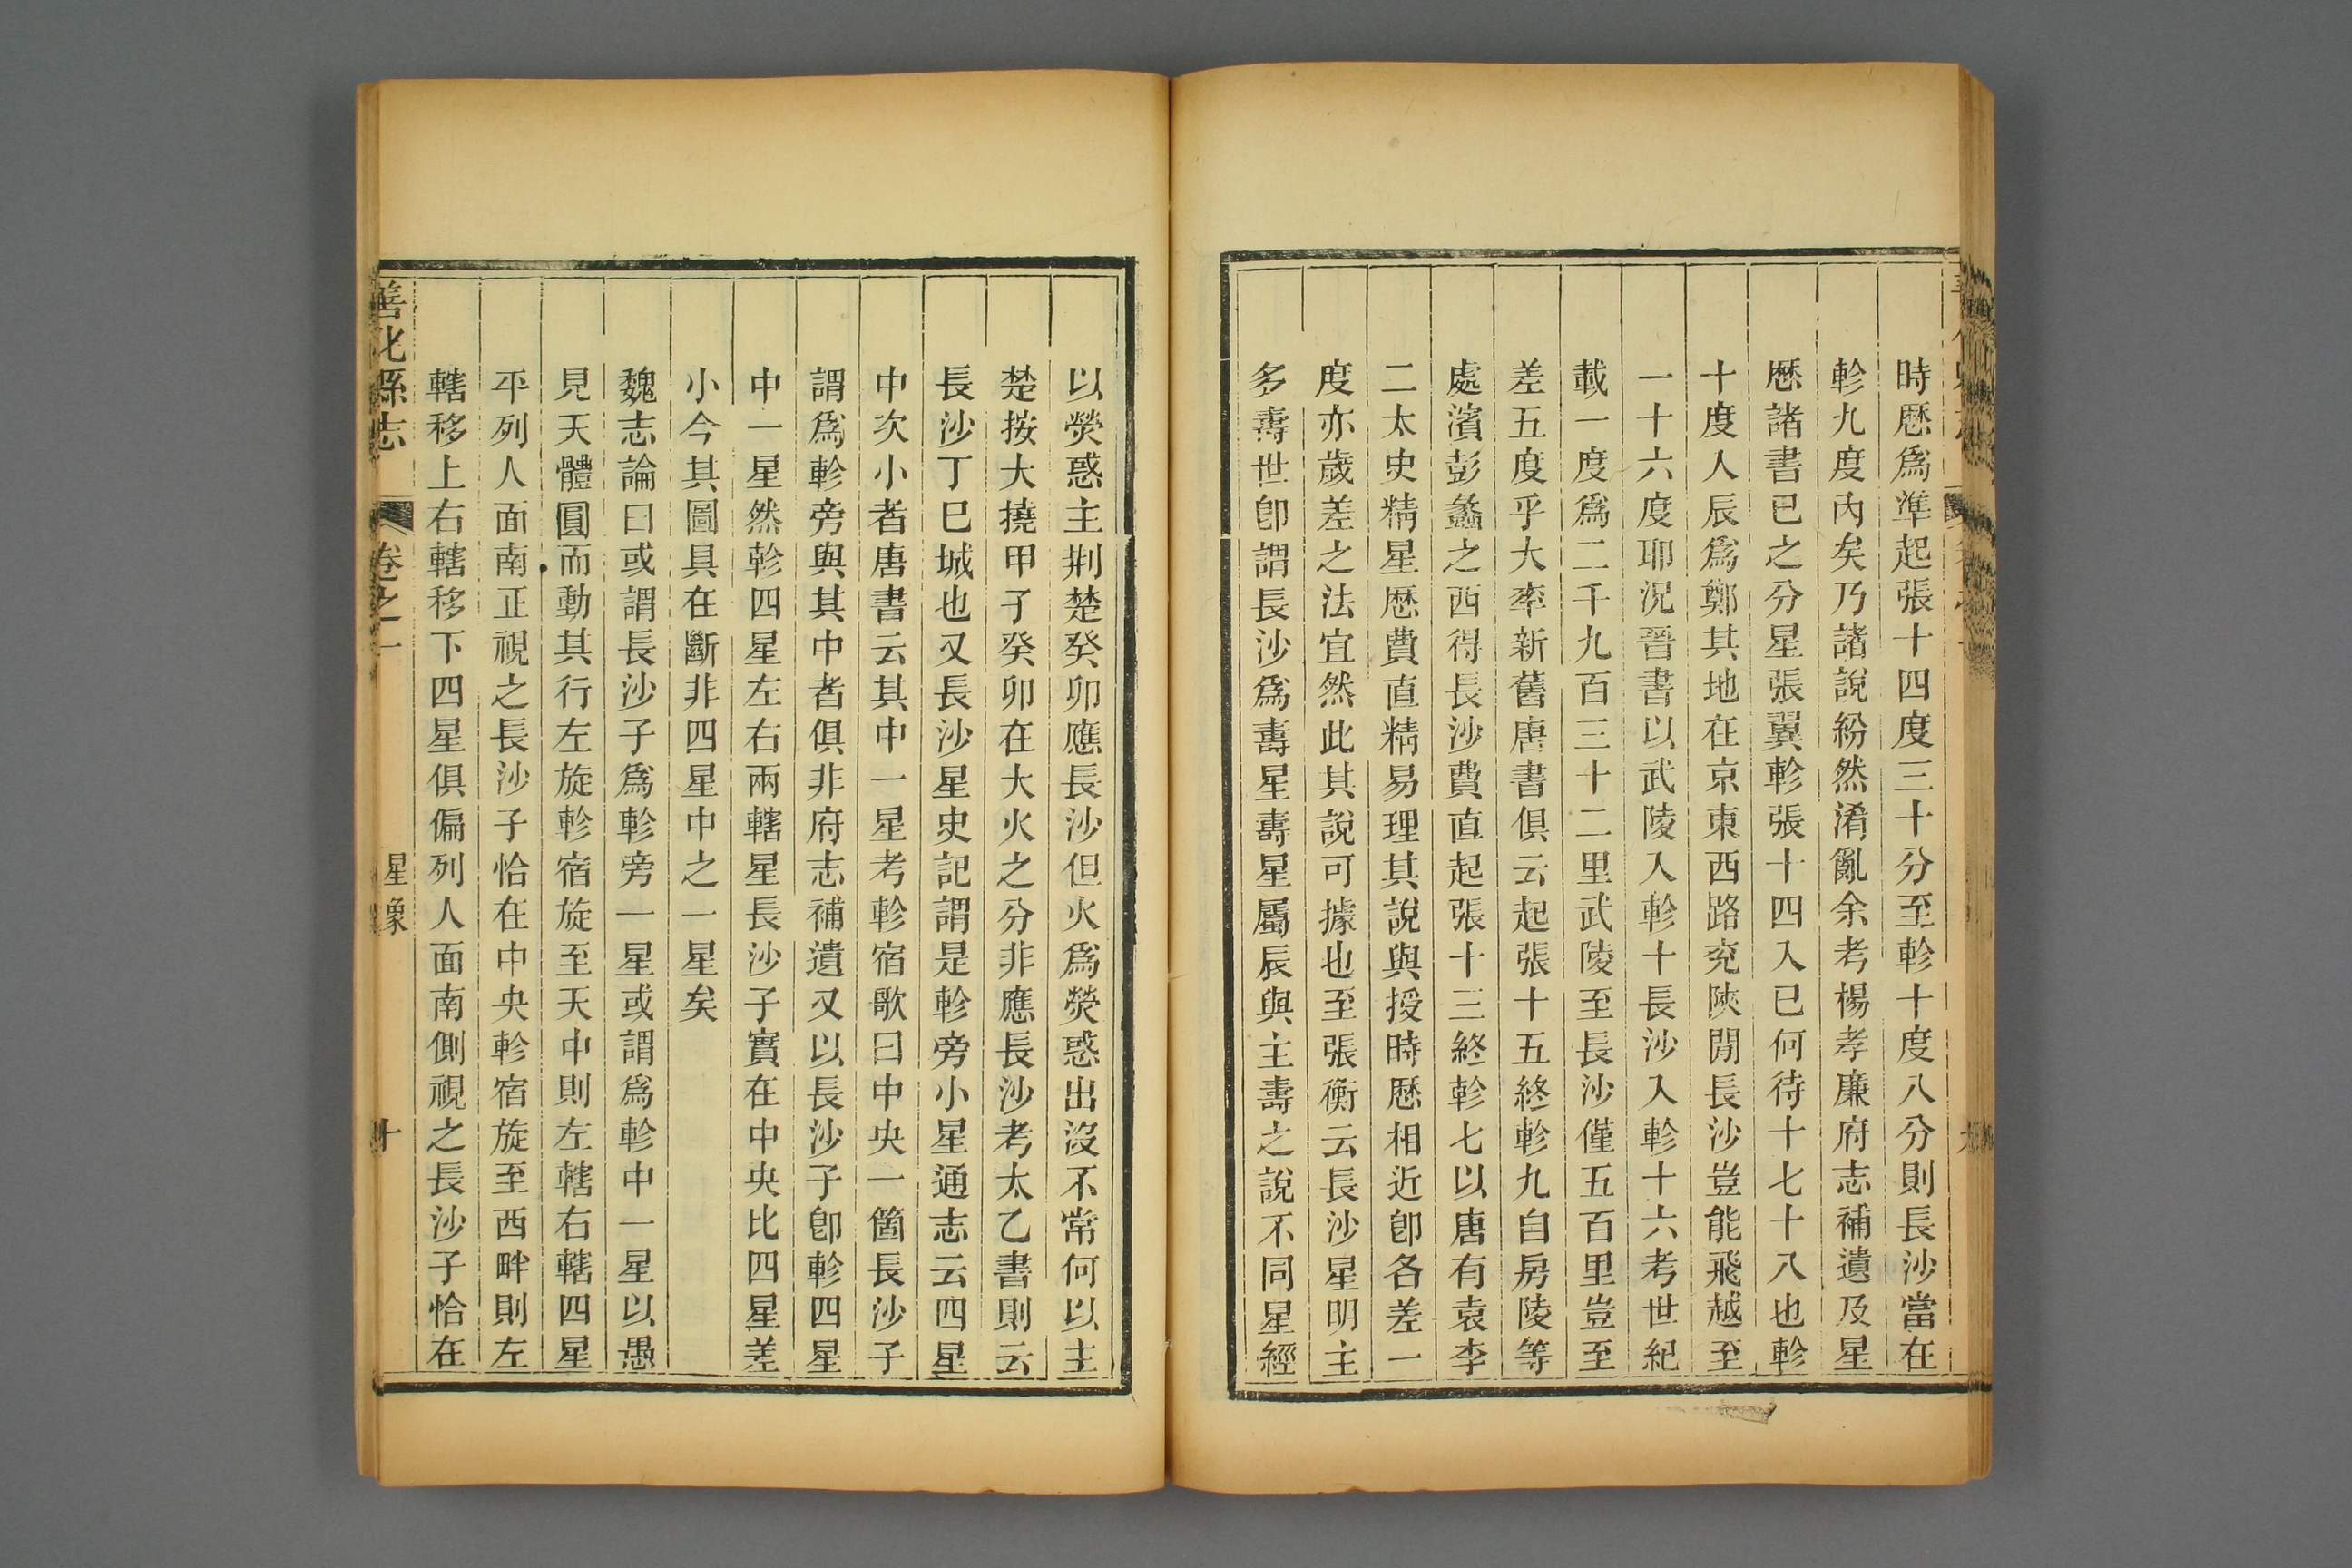 時厯爲準起張十四度三十分至軫十度八分則長沙當在
軫九度內矣乃諸說紛然淆亂余考楊孝廉府志補遺及星
厯諸書巳之分星張翼軫張十四入巳何待十七十八也軫
十度人辰爲鄭其地在京東西路兖陝閒長沙豈能飛越至
一十六度耶况晉書以武陵入軫十長沙入軫十六考世紀
載一度爲二千九百三十二里武陵至長沙僅五百里豈至
差五度乎大率新舊唐書俱云起張十五終軫九自房陵等
處濱彭蠡之西得長沙費直起張十三終軫七以唐有袁李
二太史精星厯費直精易理其說與授時厯相近卽各差一
度亦歲差之法宜然此其說可據也至張衡云長沙星明主
多壽世卽謂長沙爲壽星壽星屬辰與主壽之說不同星經
以熒惑主荆楚癸卯應長沙但火爲熒惑出沒不常何以主
楚按大撓甲子癸卯在大火之分非應長沙考太乙書則云
長沙丁巳城也又長沙星史記謂是軫旁小星通志云四星
中次小者唐書云其中一星考軫宿歌曰中央一箇長沙子
謂爲軫旁與其中者俱非府志補遺又以長沙子卽軫四星
中一星然軫四星左右兩轄星長沙子實在中央比四星差
小今其圖具在斷非四星中之一星矣
魏志論曰或謂長沙子爲軫旁一星或謂爲軫中一星以愚
見天體圓而動其行左旋軫宿旋至天中則左轄右轄四星
平列人面南正視之長沙子恰在中央軫宿旋至西畔則左
轄移上右轄移下四星俱偏列人面南側視之長沙子恰在
善化縣志 卷之一 星象 十